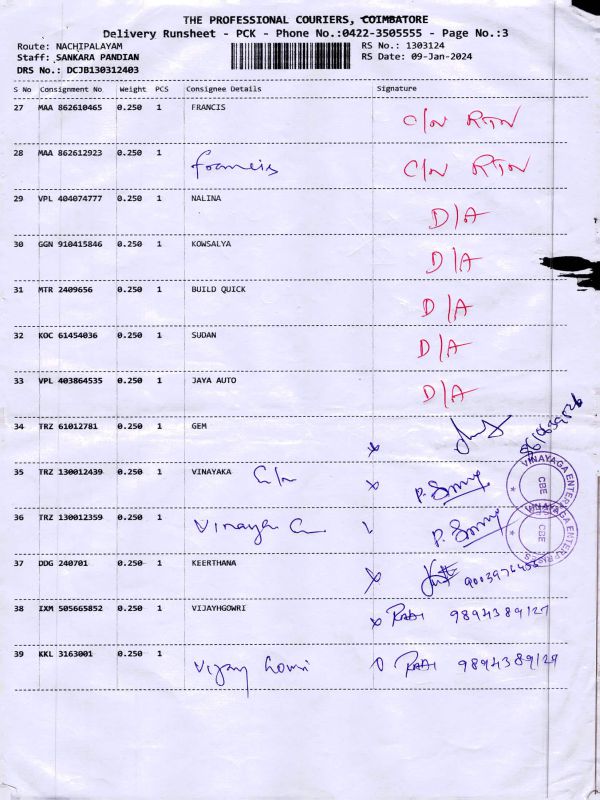 THE PROFESSIONAL COURIERS, COIMBATORE
Delivery Runsheet - PCK - Phone No.:0422-3505555 - Page No.:3
Route: NACHIPALAYAM RS No.: 1303124
Staff: SANKARA PANDIAN RS Date: 09-Jan-2024
DRS No.: DCJB130312403
S No Consignment No Weight PCS Consignee Details Signature
27 MAA 862610465 0.250 1 FRANCIS C/N RTN
28 MAA 862612923 0.250 1 francis C/N RTN
29 VPL 404074777 0.250 1 NALINA D/A
30 GGN 910415846 0.250 1 KOWSALYA D/A
31 MTR 2409656 0.250 1 BUILD QUICK D/A
32 KOC 61454036 0.250 1 SUDAN D/A
33 VPL 403864535 0.250 1 JAYA AUTO D/A
34 TRZ 61012781 0.250 1 GEM x
35 TRZ 130012439 0.250 1 VINAYAKA x
VINAYAGA ENTER
CBE
36 TRZ 130012359 0.250 1
VINAYAGA ENTERPRISES
CBE
37 DDG 240701 0.250 1 KEERTHANA x
38 IXM 505665852 0.250 1 VIJAYHGOWRI x 9894389127
39 KKL 3163001 0.250 1 Vijay Gowri 9894389129